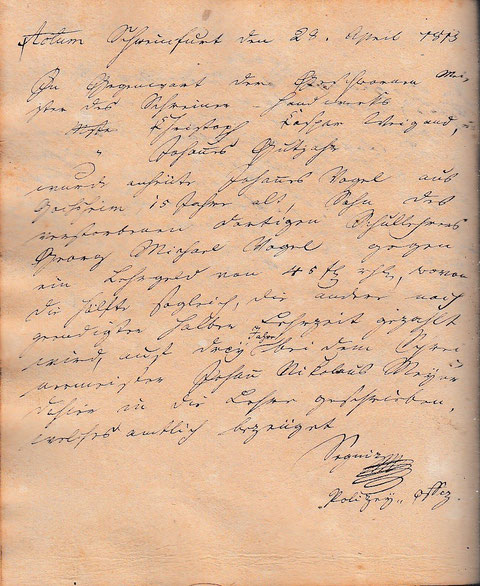 Actum Schweinfurt den 28. April 1813
In Gegenwart der Geschwornen Mei-
ster des Schreiner-Handwerks
Christoph Caspar Weigand,
" Johannes Gutjahr
wurde anheute Johannes Vogel aus
Gochsheim, 15 Jahre alt, Sohn des
verstorbenen dortigen Schullehrers
Georg Michael Vogel gegen
ein Lehrgeld von 45 fl rhl, wovon
die Hälfte sogleich, die andere nach
geendigter halber Lehrzeit gezahlt
wird, auf drey Jahre bei dem Schrei
nermeister Johann Nikolaus Meyer
dahier in die Lehre geschrieben,
welches amtlich bezeuget
Segnitz
Polizey-Offiz.